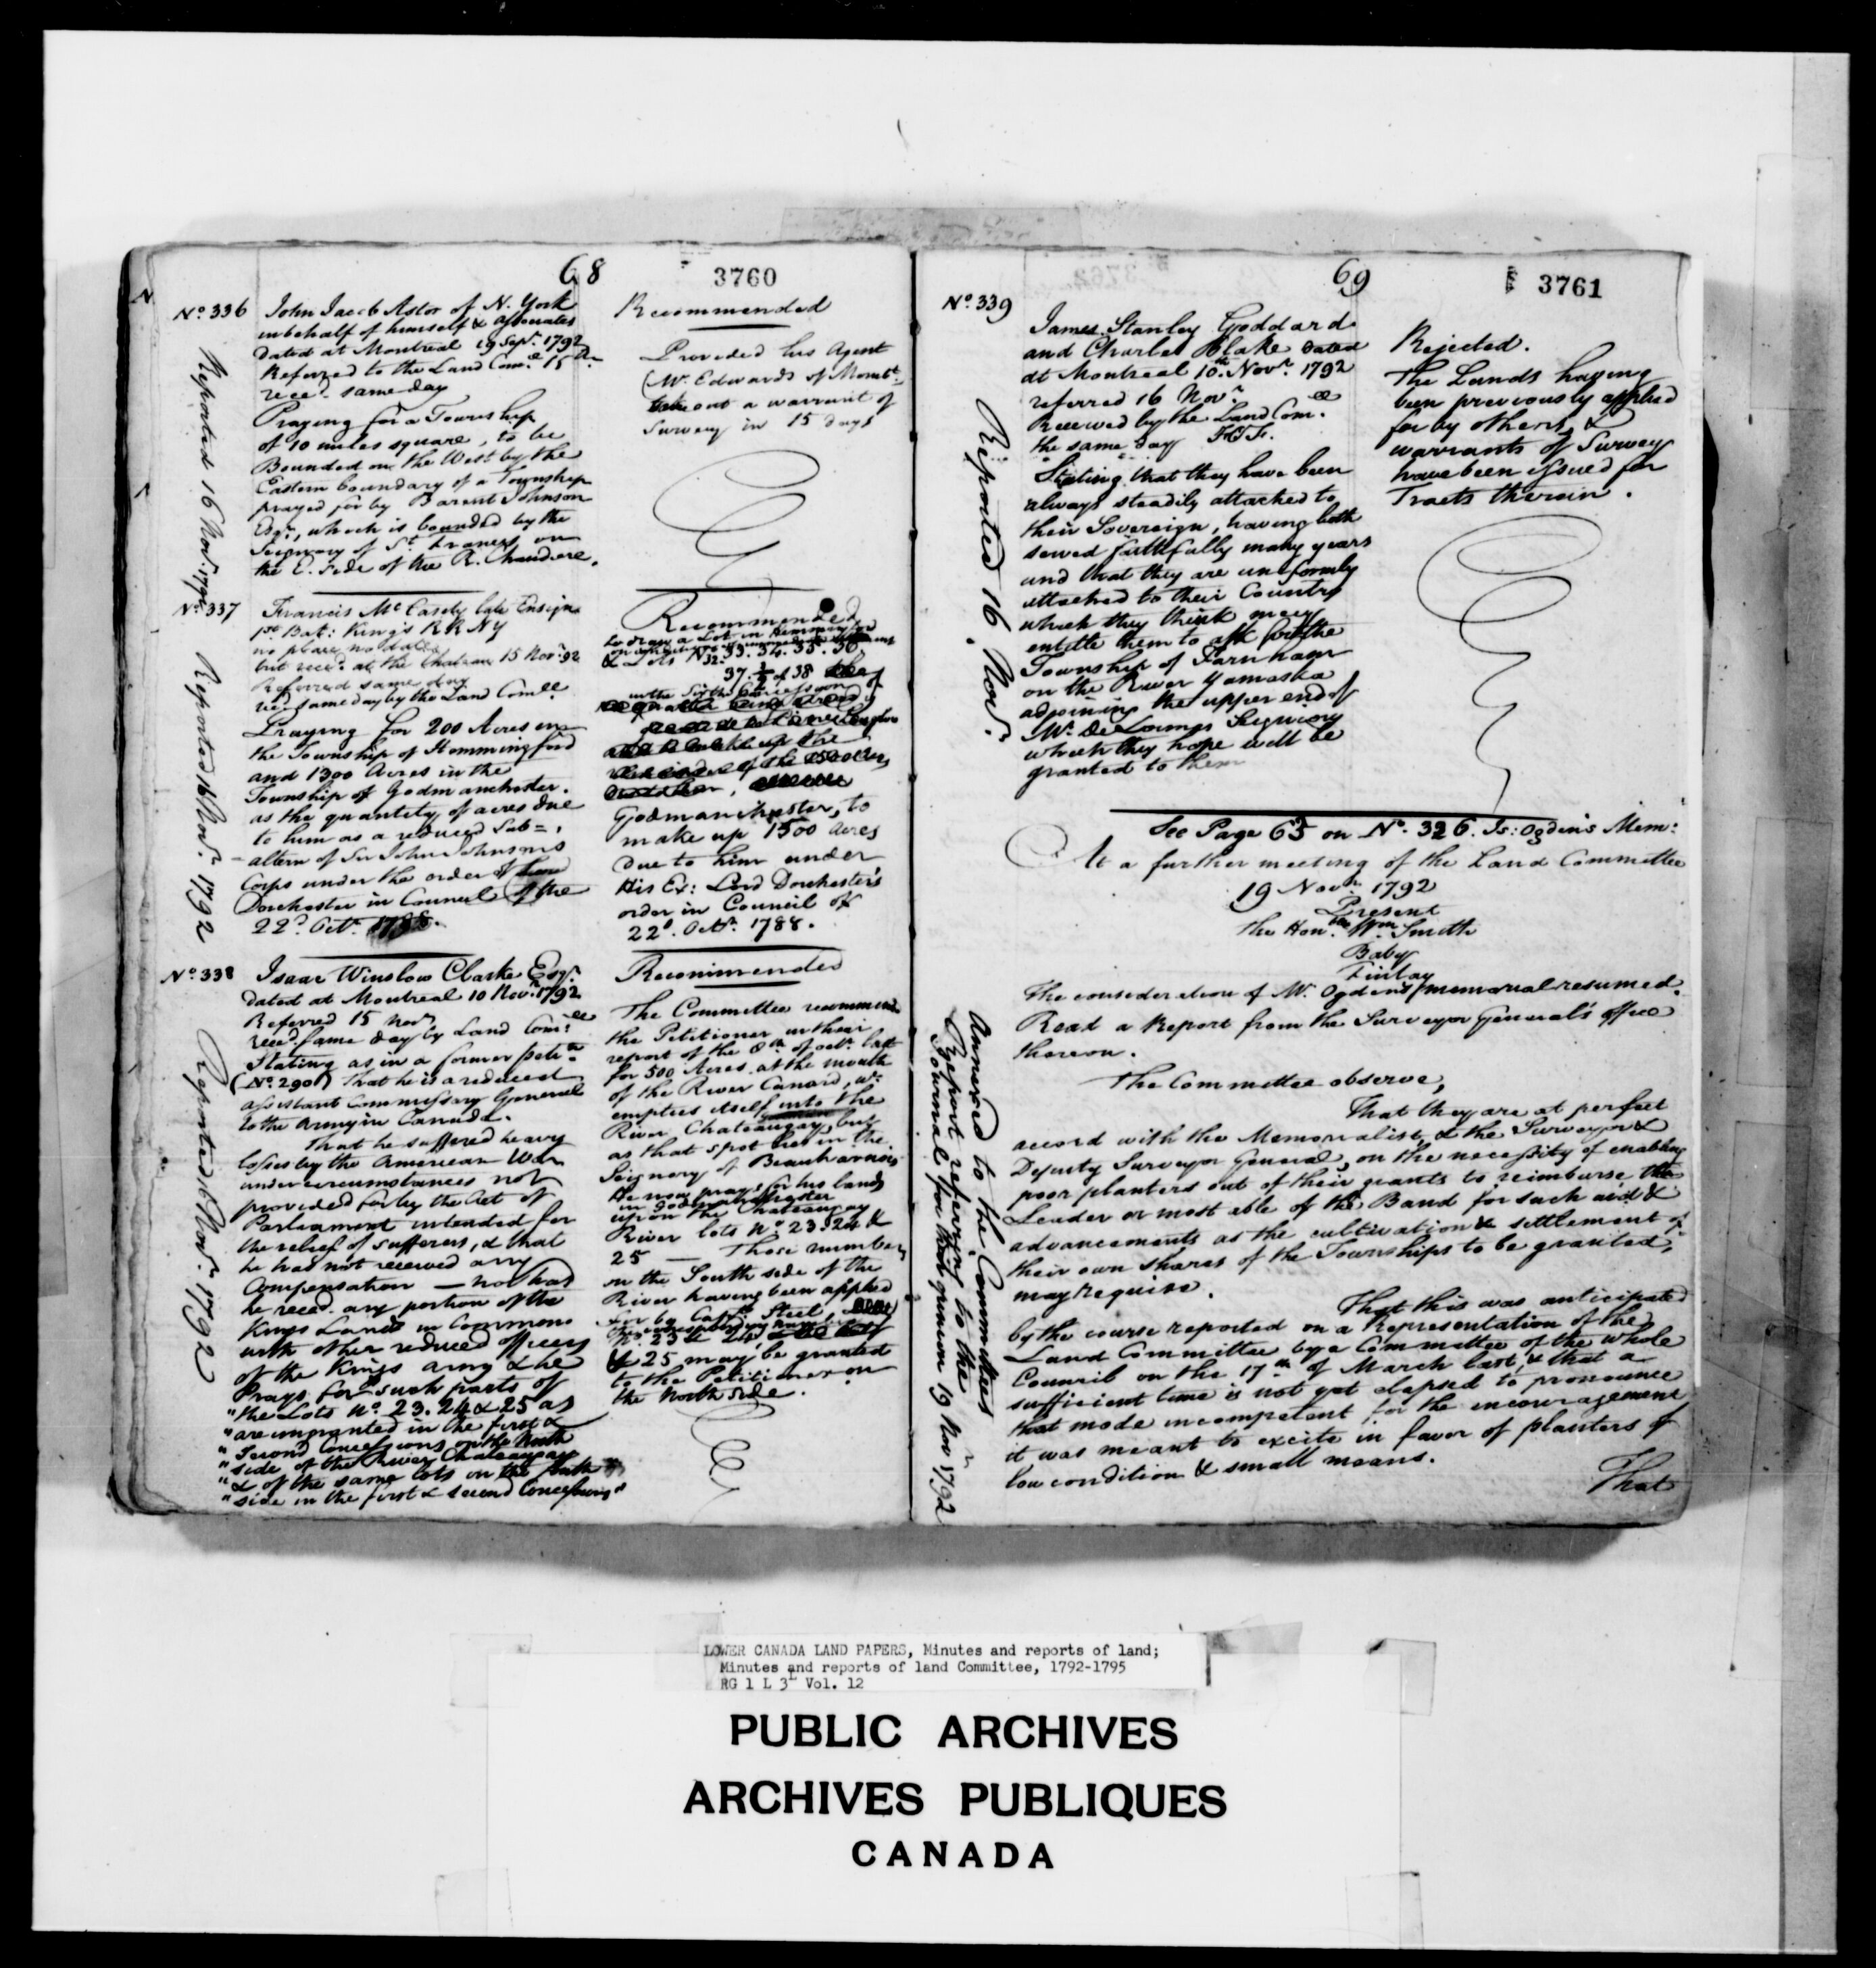 68
3760
No. 336
John Jacob Astor of N. York
in behalf of himself & associates
dated at Montreal 19 Sepr. 1792
Referred to the Land Comee. 15
recd. same day
Praying for a Township
of 10 miles square, to be
Bounded on the West by the
Eastern boundary of a Township
prayed for by Barent Johnson
Esqr., which is bounded by the
Seigniory of St. Frances on
the E. side of the R. Chaudere.
Reported 16 Novr. 1792
Recommended
Provided his Agent
(Mr. Edwards of Montl.
take out a warrant of
Survey in 15 days
No. 337
Francis McCasety late Ensign
1st Batt: King's RRNY
no place no date
but recd. at the Chateau 15 Novr. 92
Referred same day
recd. same day by the Land Comee
Praying for 200 Acres in
the Township of Hemmingford
and 1300 Acres in the
Township of Godmanchester.
as the quantity of acres due
to him as a reduced Sub=
=altern of Sir John Johnson's
Corps under the order of Lord
Dorchester in Council of the
22d. Octr. 1788.
Reported 16 Novr. 1792
Recommended
to draw a Lot in Hemmingford
& Lots No. 32. 33. 34. 35. 36.
37. ½ of 38
in the Sixth Concession of
Godmanchester, to
make up 1500 Acres
due to him under
His Ex: Lord Dorchester's
order in Council of
22d. Octr. 1788.
No. 338
Isaac Winslow Clarke Esqr.
dated at Montreal 10 Novr. 1792
Referred 15 Novr.
recd. same day by Land Comee
Stating as in a former petitn.
(No. 290) That he is a reduced
assistant Commissary General
to the Army in Canada.
That he suffered heavy
losses by the American War
under circumstances not
provided for by the Act of
Parliament intended for
the relief of sufferers, & that
he has not received any
Compensation — nor has
he recd. any portion of the
Kings Lands in Common
with other reduced officers
of the Kings army & he
Prays for "such parts of
"the Lots No. 23. 24 & 25 as
"are ungranted in the first &
"Second Concessions on the North
"side of the River Chateaugay
"& of the same lots on the South
"side in the first & second Concessions"
Reported 16 Novr. 1792
Recommended
The Committee recommended
the Petitioner in their
report of the 8th of octr. last
for 500 Acres at the mouth
of the River Canard, wc.
empties itself into the
River Chateaugay, but
as that spot lies in the
Seignory of Beauharnois
He now prays for his lands
in Godmanchester
upon the Chateaugay
River lots No. 23. 24 &
25 — Those numbers
on the South side of the
River having been applied
for by Captn. Steel,
& 25 may be granted
to the Petitioner on
the North side.
69
3761
No. 339
James Stanley Goddard
and Charles Blake dated
at Montreal 10th. Novr. 1792
referred 16 Novr.
Received by the Land Comee.
the same day
Stating that they have been
always steadily attached to
their Sovereign, having both
served faithfully many years
and that they are uniformly
attached to their Country
which they think may
entitle them to ask for the
Township of Farnham
on the River Yamaska
adjoining the upper end of
Mr. De Loumes Seigniory
which they hope will be
granted to them
Reported 16. Novr.
Rejected.
The Lands having
been previously applied
for by others, &
warrants of Survey
have been issued for
Tracts therein.
See Page 65 on No. 326. Is: Ogden's Mem:
At a further meeting of the Land Committee
19 Novr. 1792
Present
The Honble. Wm. Smith
Baby
Finlay
The consideration of Mr. Ogden's memorial resumed.
Read a Report from the Surveyor General's office
thereon.
The Committee observe,
That they are at perfect
accord with the Memorialist, & the Surveyor &
Deputy Surveyor General, on the necessity of enabling
poor planters out of their grants to reimburse the
Leader or most able of the Band for such aid &
advancements as the cultivation & settlement of
their own shares of the Townships to be granted,
may require.
That this was anticipated
by the course reported on a Representation of the
Land Committee by a Committee of the whole
Council on the 17th of March last, & that a
sufficient time is not yet elapsed to pronounce
that mode incompetent for the encouragement
it was meant to excite in favor of planters of
low condition & small means.
That
Annexed to the Committees
Report referring to the
Journal for their opinion 19 Novr 1792
LOWER CANADA LAND PAPERS, Minutes and reports of land;
Minutes and reports of land Committee, 1792-1795
RG 1 L 3L Vol. 12
PUBLIC ARCHIVES
ARCHIVES PUBLIQUES
CANADA